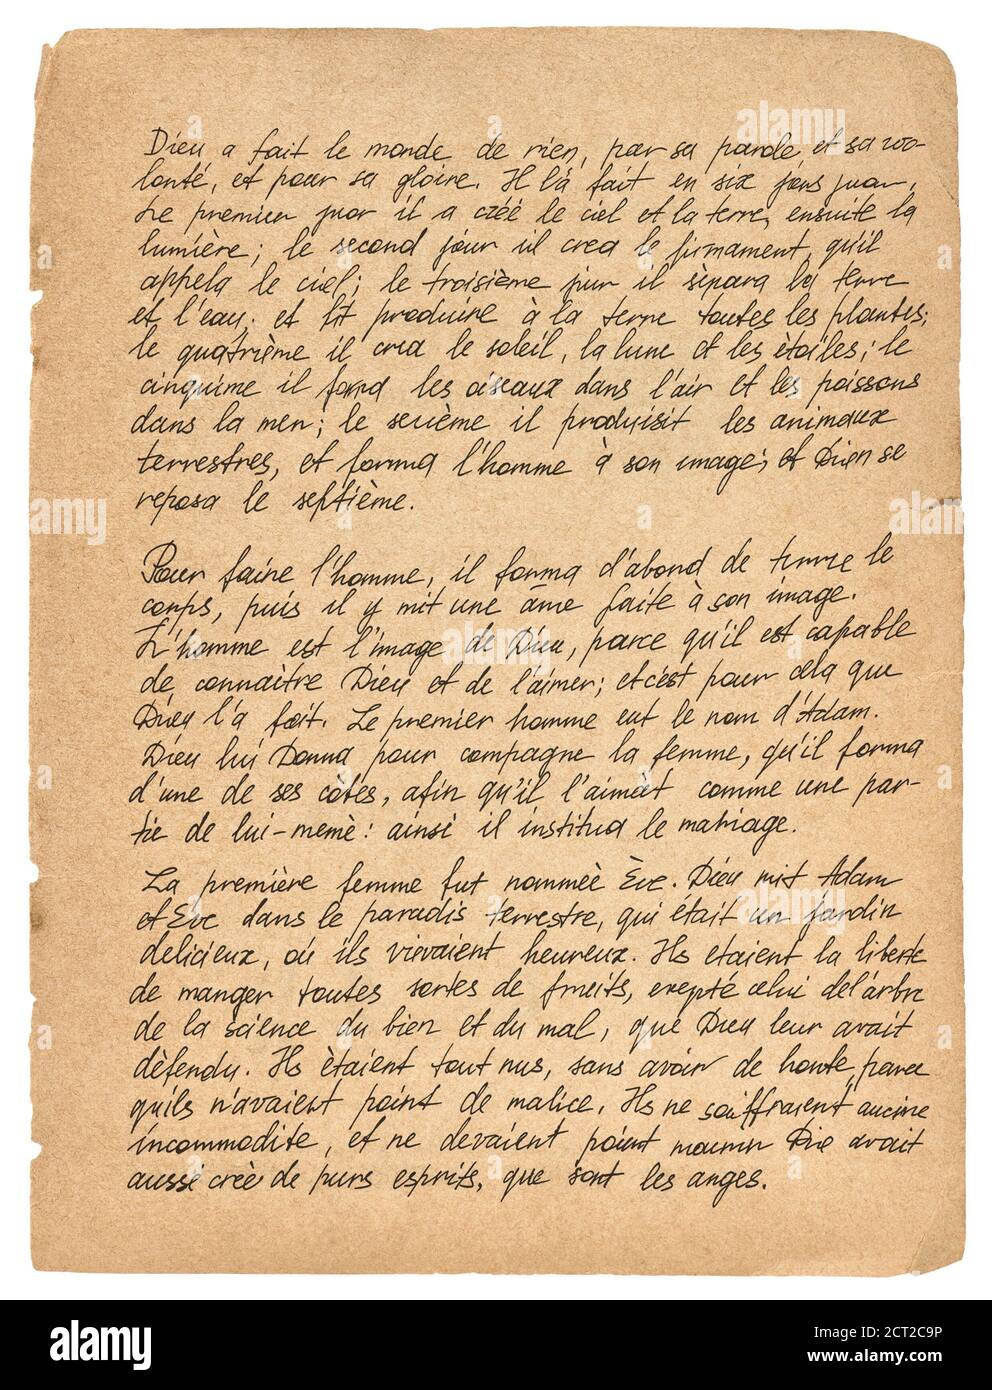 Dieu a fait le monde de rien, par sa parole, et sa vo-
lonté, et pour sa gloire. Il l'a fait en six jours
Le premier juor il a créé le ciel et la terre, ensuite la
lumière; le second jour il crea le firmament, qu'il
appela le ciel; le troisième jiur il sèpara la terre
et l'eau, et fit produire à la terre toutes les plantes;
le quatrième il crea le soleil, la lune et les ètoiles; le
cinquime il les oiseaux dans l'air et les poissons
dans la mer; le il produisit les animaux
terrestres, et forma l'homme à son image; et Dieu se
reposa le septième.
Pour faire l'homme, il forma d'abord de terre le
corps, puis il y mit une âme faite à son image.
L'homme est l'image de Dieu, parce qu'il est capable
de connaitre Dieu et de l'aimer; et c'est pour cela que
Dieu l'a fait. Le premier homme eut le nom d'Adam.
Dieu lui Donna pour compagne la femme, qu'il forma
d'une de ses còtes, afin qu'il l'aimàt comme une par-
tie de lui-memè: ainsi il institua le mariage.
La première femme fut nommèè Ève. Dieu mit Adam
et Eve dans le paradis terrestre, qui était un jardin
delicieux, où ils vivaient heureux. Ils etaient la liberte
de manger toutes sortes de fruits, exepté celui de l'arbre
de la science du bien et du mal, que Dieu leur avait
dèfendu. Ils ètaient tout nus, sans avoir de honte, parce
qu'ils n'avaient point de malice. Ils ne souffraient aucune
incommodite, et ne devaient point mourir Die avait
aussi créè de purs esprits, que sont les anges.
alamy
Image ID: 2CT2C9P
www.alamy.com